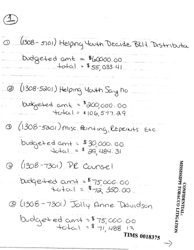 1
① (1308-5101) Helping Youth Decide Bklt Distributn
budgeted amt = $60000.00
total = $55,033.41
② (1308-5201) Helping Youth Say No
budgeted amt = $200,000.00
total = $106,577.29
③ (1308-5301) misc Printing, Reprints Etc
budgeted amt = $30,000.00
total = $29,484.31
④ (1308-7301) PR Counsel
budgeted amt = $75,000.00
total = $72,350.00
⑤ (1308-7301) Jolly Anne Davidson
budgeted amt = $75,000.00
total = $71,488.13
CONFIDENTIAL:
MINNESOTA TOBACCO LITIGATION
TIMN 0018375